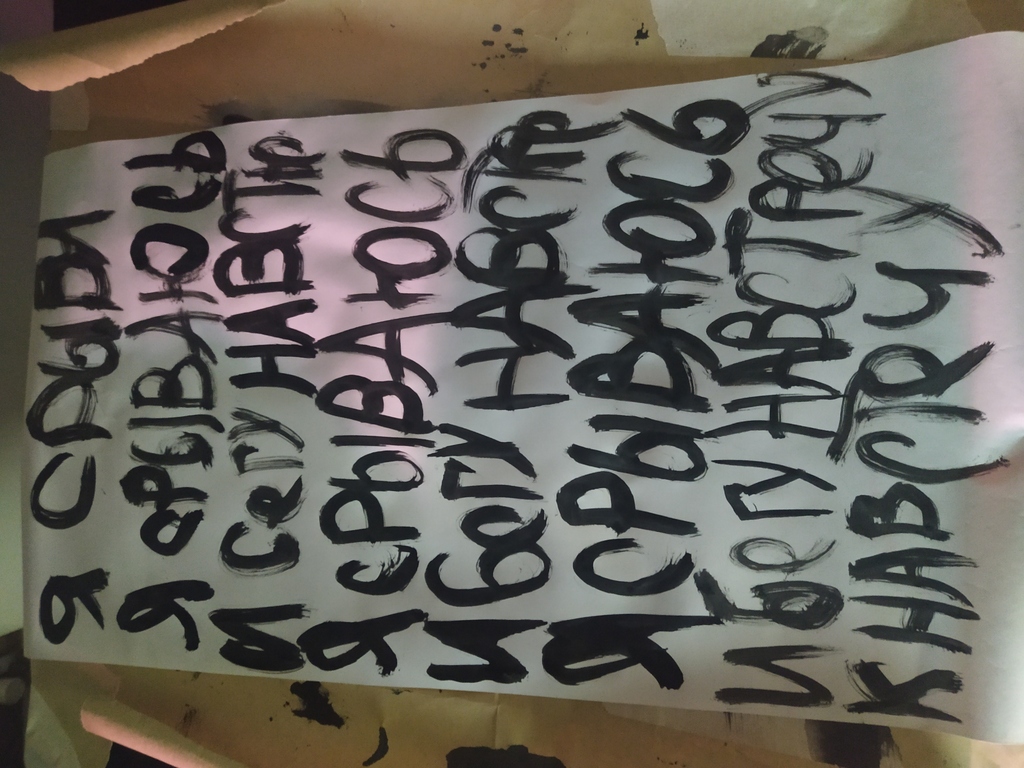 Я СРЫВА
Я СРЫВАЮСЬ
И БЕГУ НАВСТР
Я СРЫВАЮСЬ
И БЕГУ НАВСТР
Я СРЫВАЮСЬ
И БЕГУ НАВСТРЕЧУ
К НАВСТРЧУ